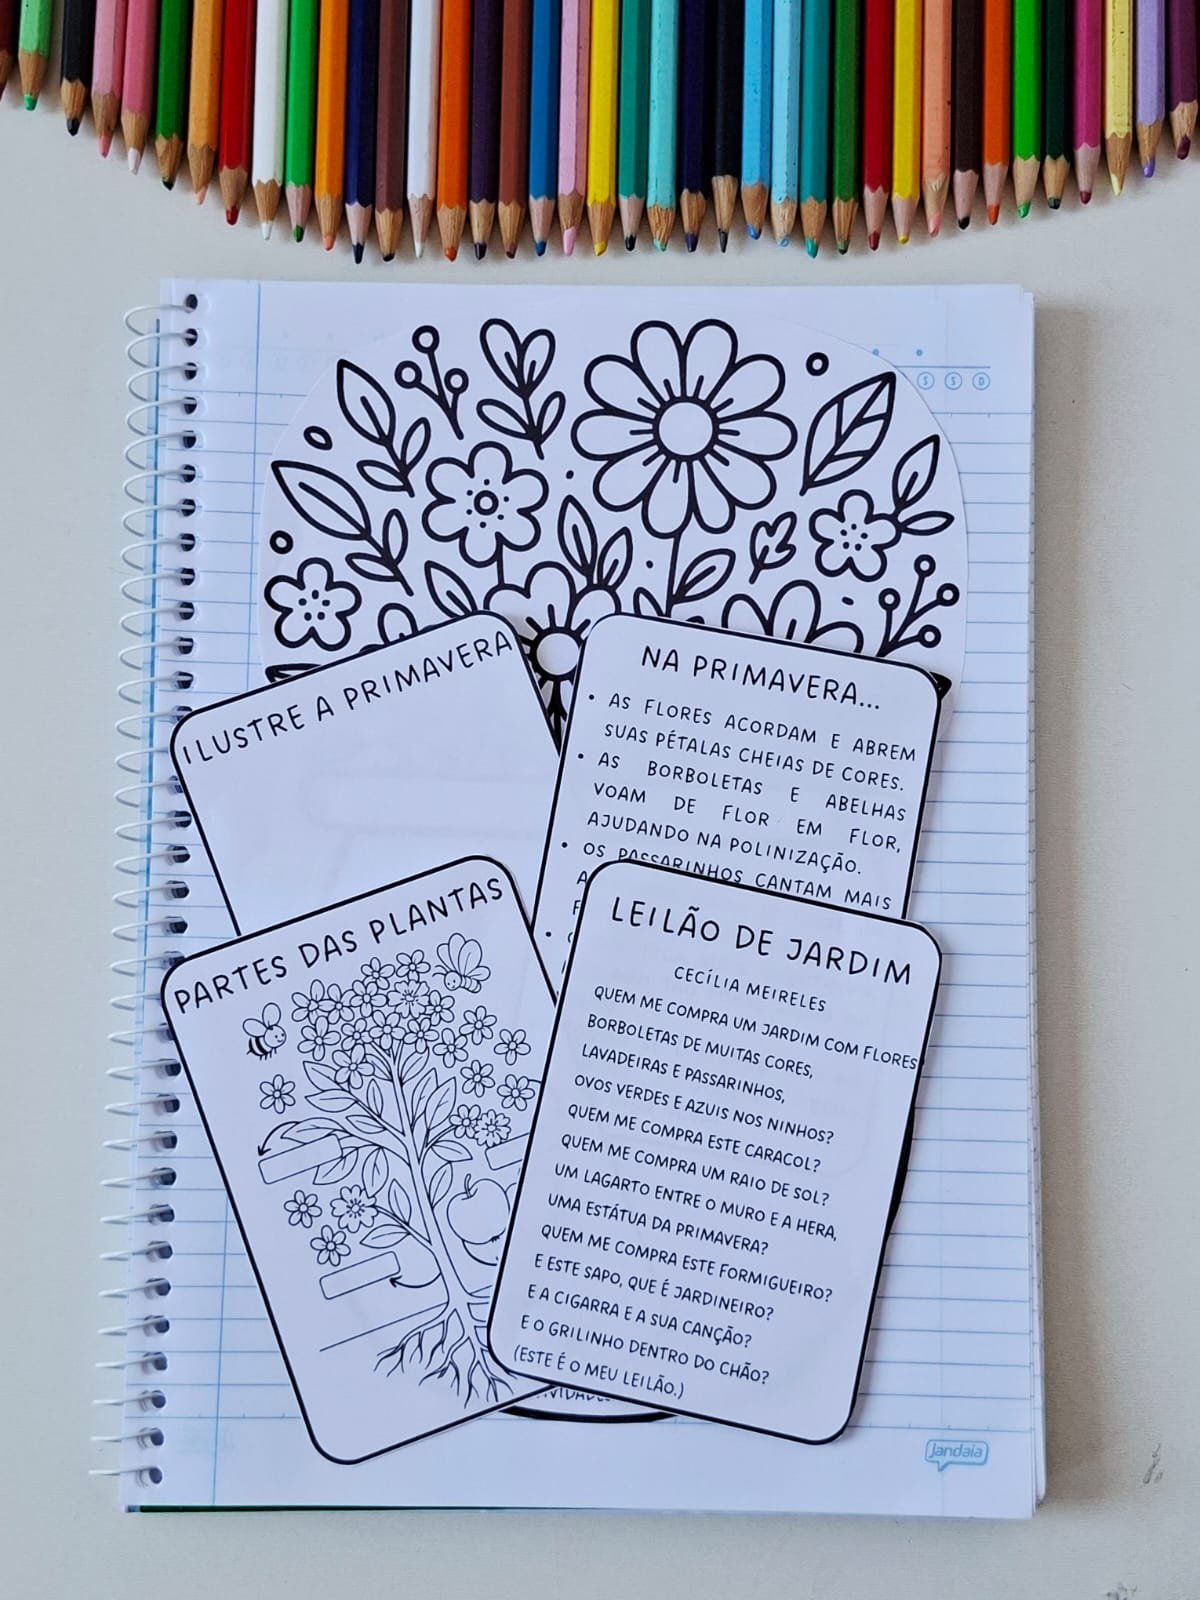 S S D
ILUSTRE A PRIMAVERA
NA PRIMAVERA...
• AS FLORES ACORDAM E ABREM
SUAS PÉTALAS CHEIAS DE CORES.
• AS BORBOLETAS E ABELHAS
VOAM DE FLOR EM FLOR,
AJUDANDO NA POLINIZAÇÃO.
• OS PASSARINHOS CANTAM MAIS
PARTES DAS PLANTAS
LEILÃO DE JARDIM
CECÍLIA MEIRELES
QUEM ME COMPRA UM JARDIM COM FLORES
BORBOLETAS DE MUITAS CORES,
LAVADEIRAS E PASSARINHOS,
OVOS VERDES E AZUIS NOS NINHOS?
QUEM ME COMPRA ESTE CARACOL?
QUEM ME COMPRA UM RAIO DE SOL?
UM LAGARTO ENTRE O MURO E A HERA,
UMA ESTÁTUA DA PRIMAVERA?
QUEM ME COMPRA ESTE FORMIGUEIRO?
E ESTE SAPO, QUE É JARDINEIRO?
E A CIGARRA E A SUA CANÇÃO?
E O GRILINHO DENTRO DO CHÃO?
(ESTE É O MEU LEILÃO.)
jandaia